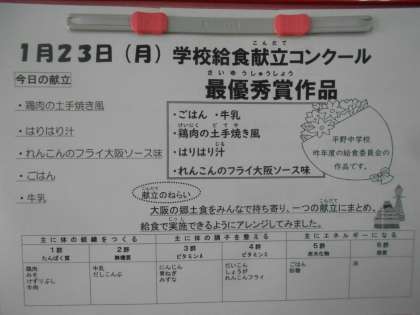 1月23日（月）学校給食献立コンクール
こんだて
さいゆうしゅうしょう
最優秀賞作品
今日の献立
・鶏肉の土手焼き風
・はりはり汁
・れんこんのフライ大阪ソース味
・ごはん
・牛乳
・ごはん ・牛乳
けいにく どてや ふう
・鶏肉の土手焼き風
じる
・はりはり汁
・れんこんのフライ大阪ソース味
平野中学校
昨年度の給食委員会の
作品です。
こんだて
献立のねらい
大阪の郷土食をみんなで持ち寄り、一つの献立にまとめ、
給食で実施できるようにアレンジしてみました。
主に体の組織をつくる 主に体の調子を整える 主にエネルギーになる
1群 2群 3群 4群 5群 6群
たんぱく質 無機質 ビタミンA ビタミンC 炭水化物 脂質
鶏肉 牛乳 にんじん だいこん ごはん
みそ だしこんぶ 青ねぎ しょうが 砂糖
けずりぶし みずな れんこんフライ
牛肉